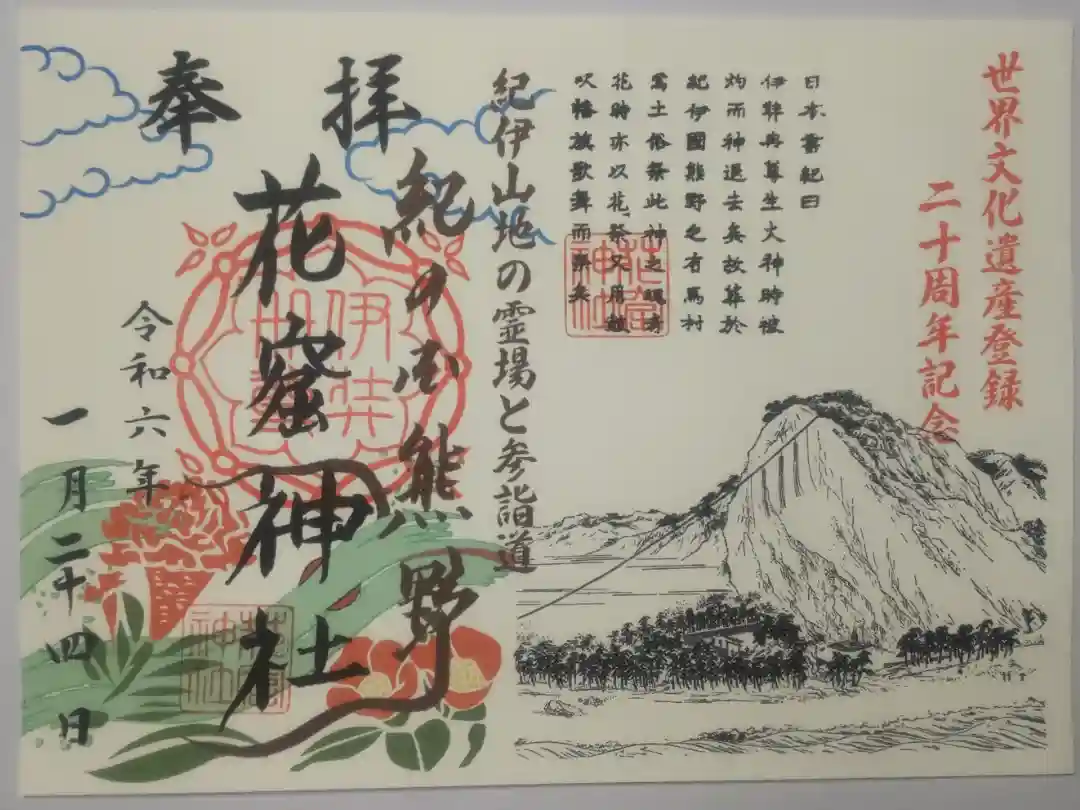 世界文化遺産登録
二十周年記念
日本書紀曰
伊弉冉尊生火神時被
灼而神退去矣故葬於
紀伊國熊野之有馬村
焉土俗祭此神之魂者
花時亦以花祭又用鼓
吹幡旗歌舞而祭矣
花窟
神社
紀伊山地の霊場と参詣道
奉拝
紀の国熊野
花窟神社
伊弉
冊尊
花窟
神社
令和六年
一月二十四日